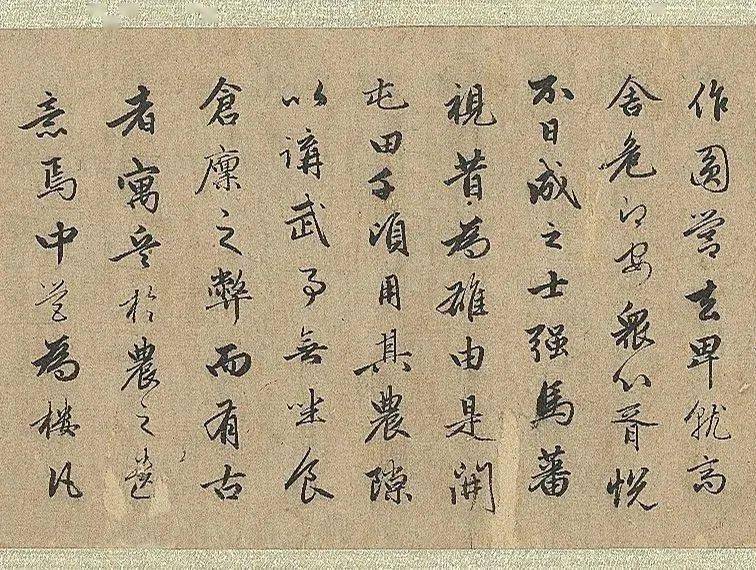 作圓營去卑就高
舍危即安衆心胥悅
不日成之士强馬蕃
視昔為雄由是開
屯田千頃用其農隙
以講武事無坐食
倉廩之弊而有古
者寓兵於農之遺
意焉中營為樓凡